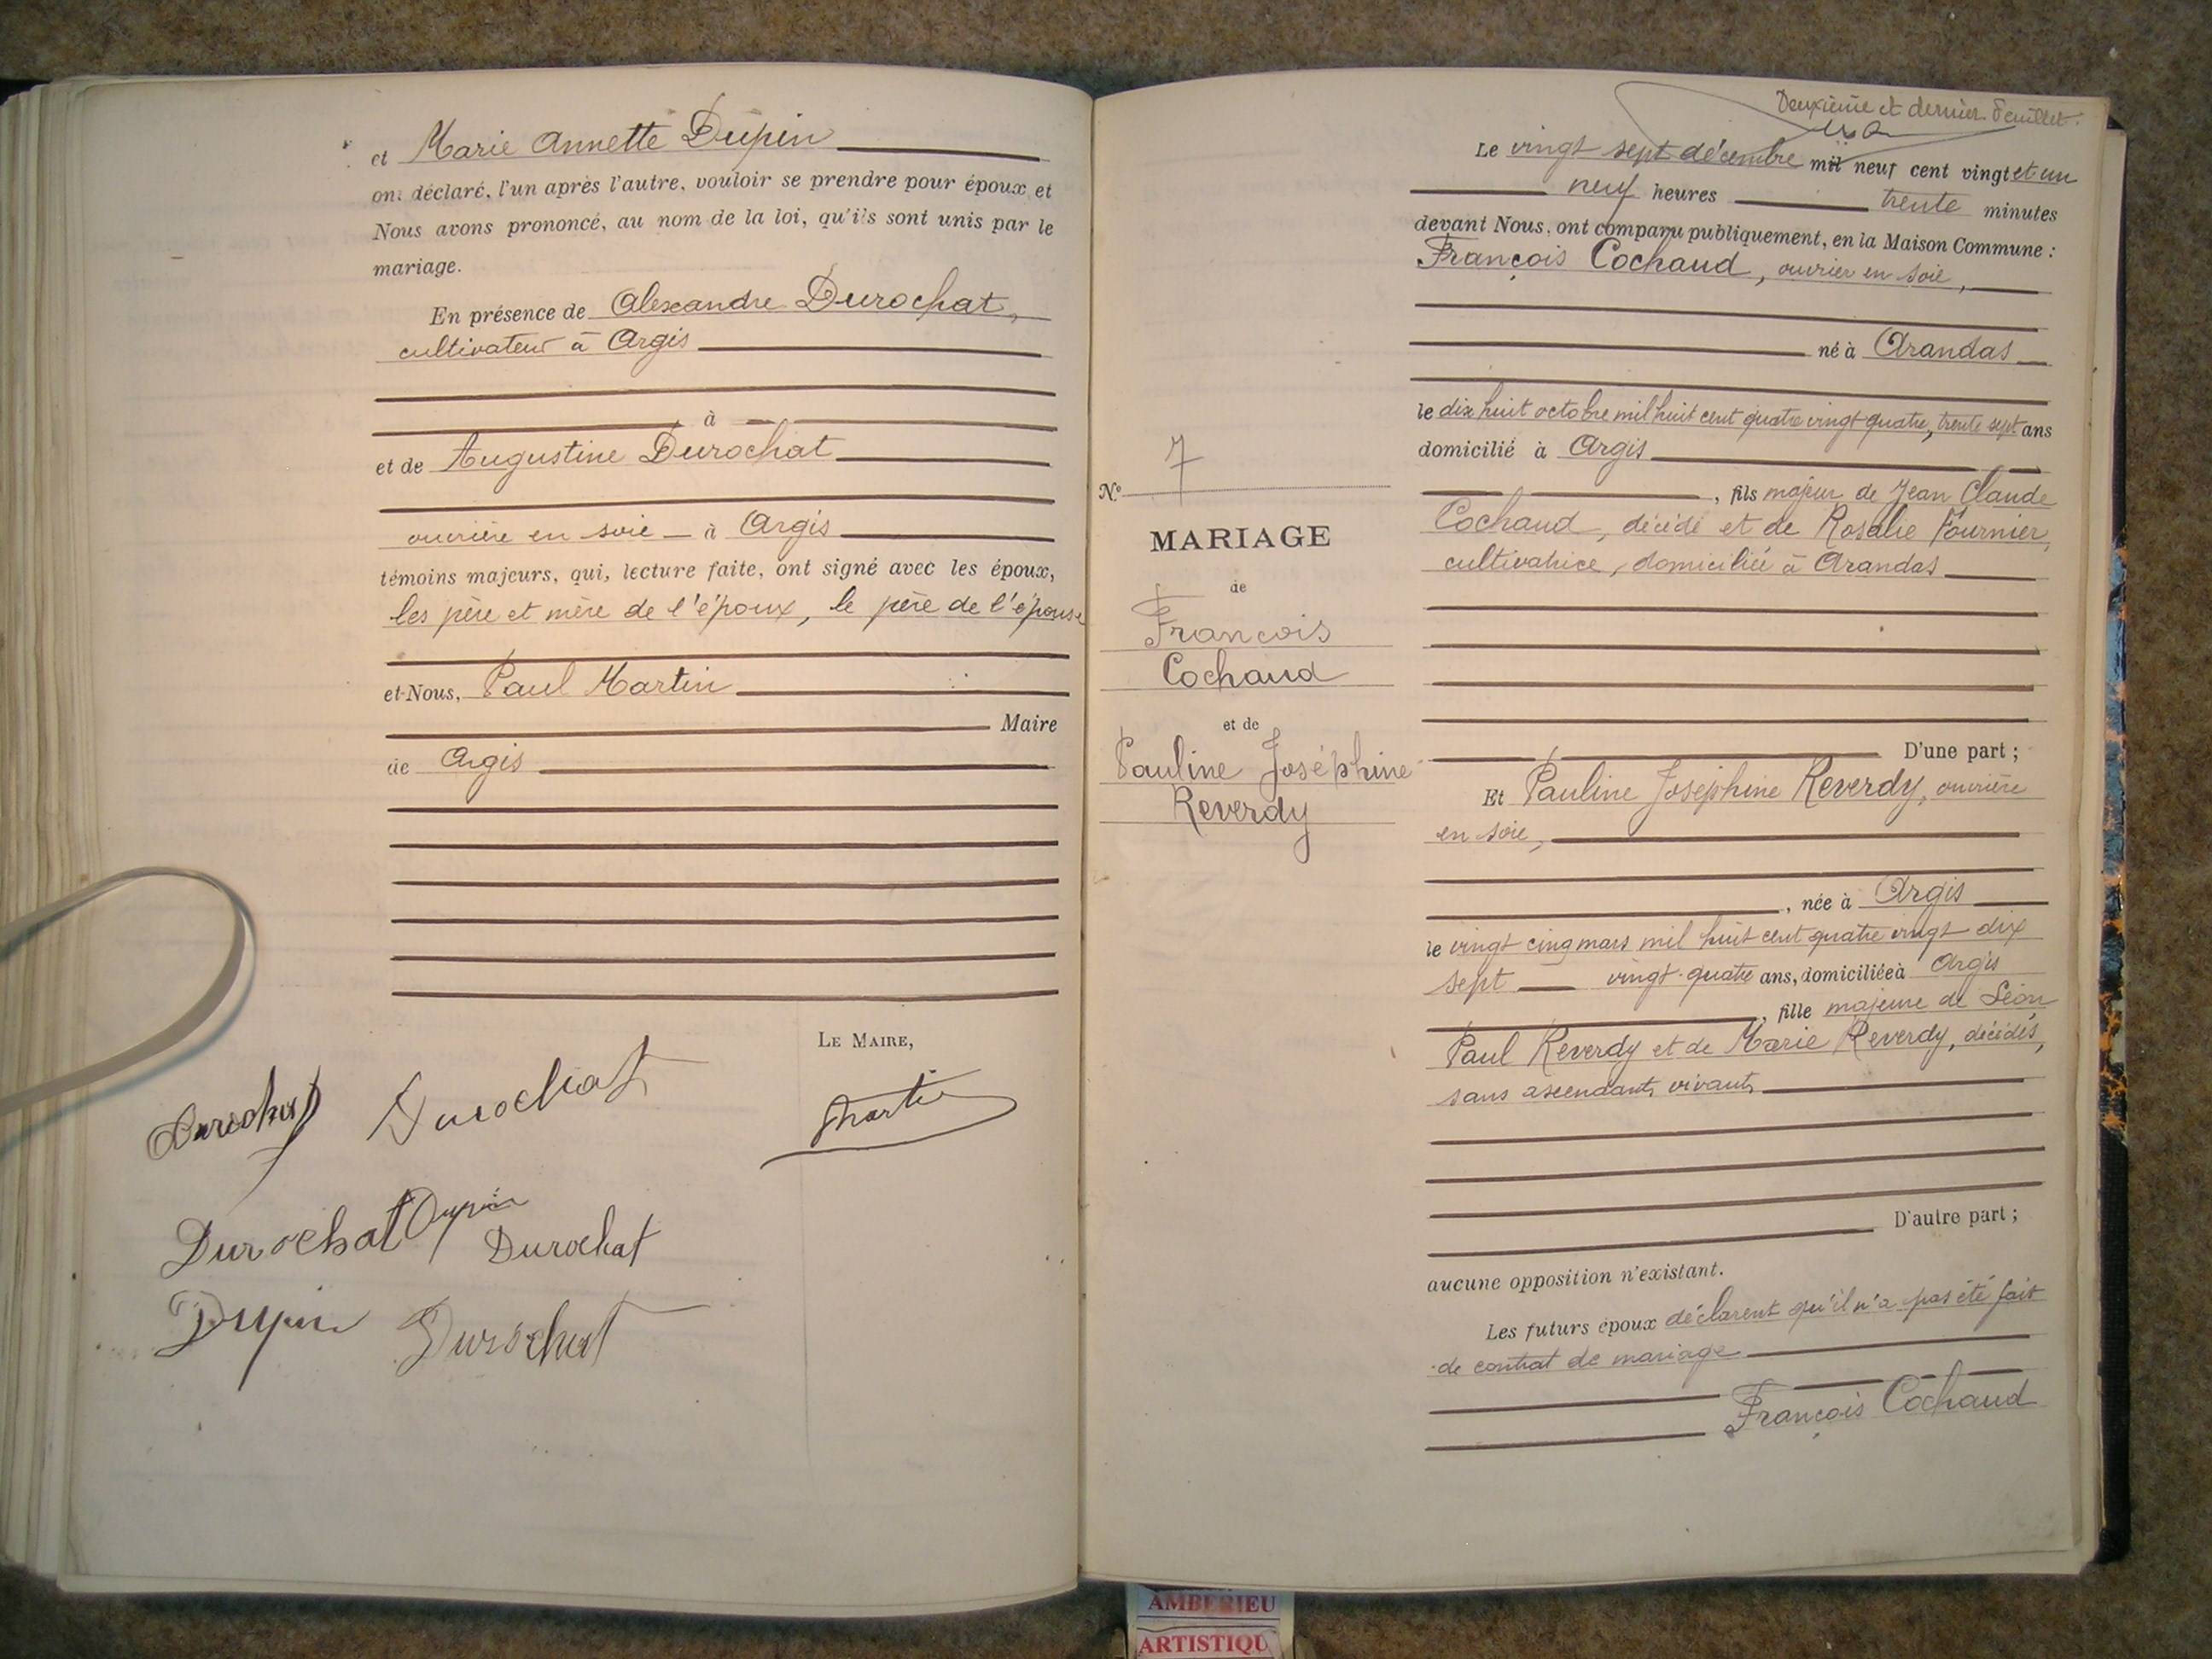 et Marie Annette Dupin
ont déclaré, l'un après l'autre, vouloir se prendre pour époux et
Nous avons prononcé, au nom de la loi, qu'ils sont unis par le
mariage.
En présence de Alexandre Durochat,
cultivateur à Argis
à
et de Augustine Durochat
ouvrière en soie à Argis
témoins majeurs, qui, lecture faite, ont signé avec les époux,
les père et mère de l'époux, le père de l'épouse
et Nous, Paul Martin
Maire
de Argis
LE MAIRE,
Durochat Durochat
Martin
Durochat Dupin
Durochat
Dupin Durochat
Deuxième et dernier feuillet.
Le vingt sept décembre mil neuf cent vingt et un
neuf heures trente minutes
devant Nous, ont comparu publiquement, en la Maison Commune :
François Cochaud, ouvrier en soie,
né à Arandas
le dix huit octobre mil huit cent quatre vingt quatre, trente sept ans
domicilié à Argis
, fils majeur de Jean Claude
Cochaud, décédé et de Rosalie Fournier,
cultivatrice, domiciliée à Arandas
D'une part ;
Et Pauline Joséphine Reverdy, ouvrière
en soie,
, née à Argis
le vingt cinq mars mil huit cent quatre vingt dix
sept vingt-quatre ans, domiciliée à Argis
, fille majeure de Léon
Paul Reverdy et de Marie Reverdy, décédés,
sans ascendants vivants
D'autre part ;
aucune opposition n'existant.
Les futurs époux déclarent qu'il n'a pas été fait
de contrat de mariage
François Cochaud
N° 7
MARIAGE
de
François
Cochaud
et de
Pauline Joséphine
Reverdy
AMBERIEU
ARTISTIQU